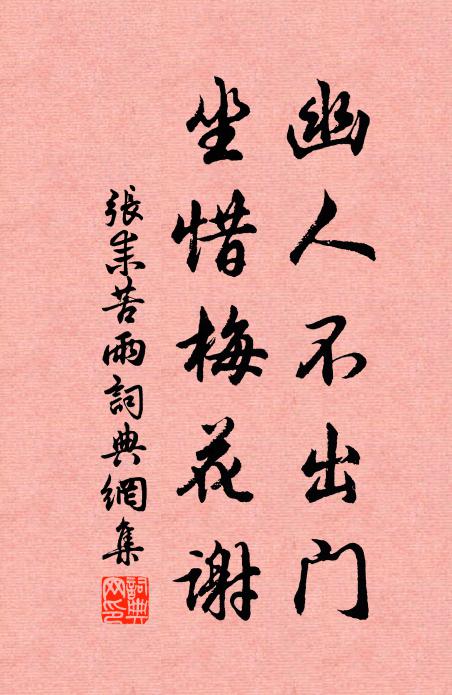 幽人不出门
坐惜梅花谢
張耒苦雨詞典網集
詞典網印